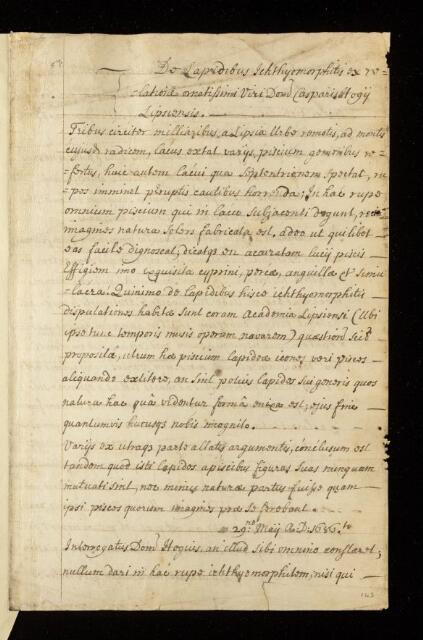 De Lapidibus Ichthyomorphitis ex re=
=latione ornatissimi Viri Domi Casparis Hogij
Lipsiensis.
Tribus circiter milliaribus, a Lipsia Urbe remotis, ad montis
cujusd radicem, lacus extat varijs, piscium generibus re=
=fertus, huic autem lacui qua Septentrionem spectat, ru=
=pes imminet peruptis cautibus horrenda; In hac rupe
omnium piscium qui in lacu Subjacenti degunt,
imagines natura Solers fabricata est. adeo ut quilibet
eas facile dignoscat, dicatqs en accuratam lucij piscis
Effigiem imo exquisita cyprini, percæ, anguillæ et Simu=
=lacra. Quinimo de lapidibus hisce ichthyomorphitis
disputationes habitæ Sunt coram Academia Lipsiensi (Ubi
ipse tunc temporis musis operam navarem) quæstion
propositæ, utrum hæ piscium lapideæ icones veri pisces
aliquando extitere, an Sint potius lapides Sui generis quos
natura hac quâ videntur formâ enixa est, ejus finis
quantumvis hucusqs nobis incognito.
Varijs ex utraqs parte allatis argumentis, conclusum est
tandem quod isti lapides a piscibus figuras Suas nunquam
mutuati Sint, nec minus naturæ partus fuisse quam
ipsi pisces quorum imagines præ Se ferebant.
29.no Maij A.D. 1686.to
Interrogatus Dom. Hogius, an illud Sibi omnino constaret,
nullum dari in hac rupe ichthyomorphitem, nisi qui
143